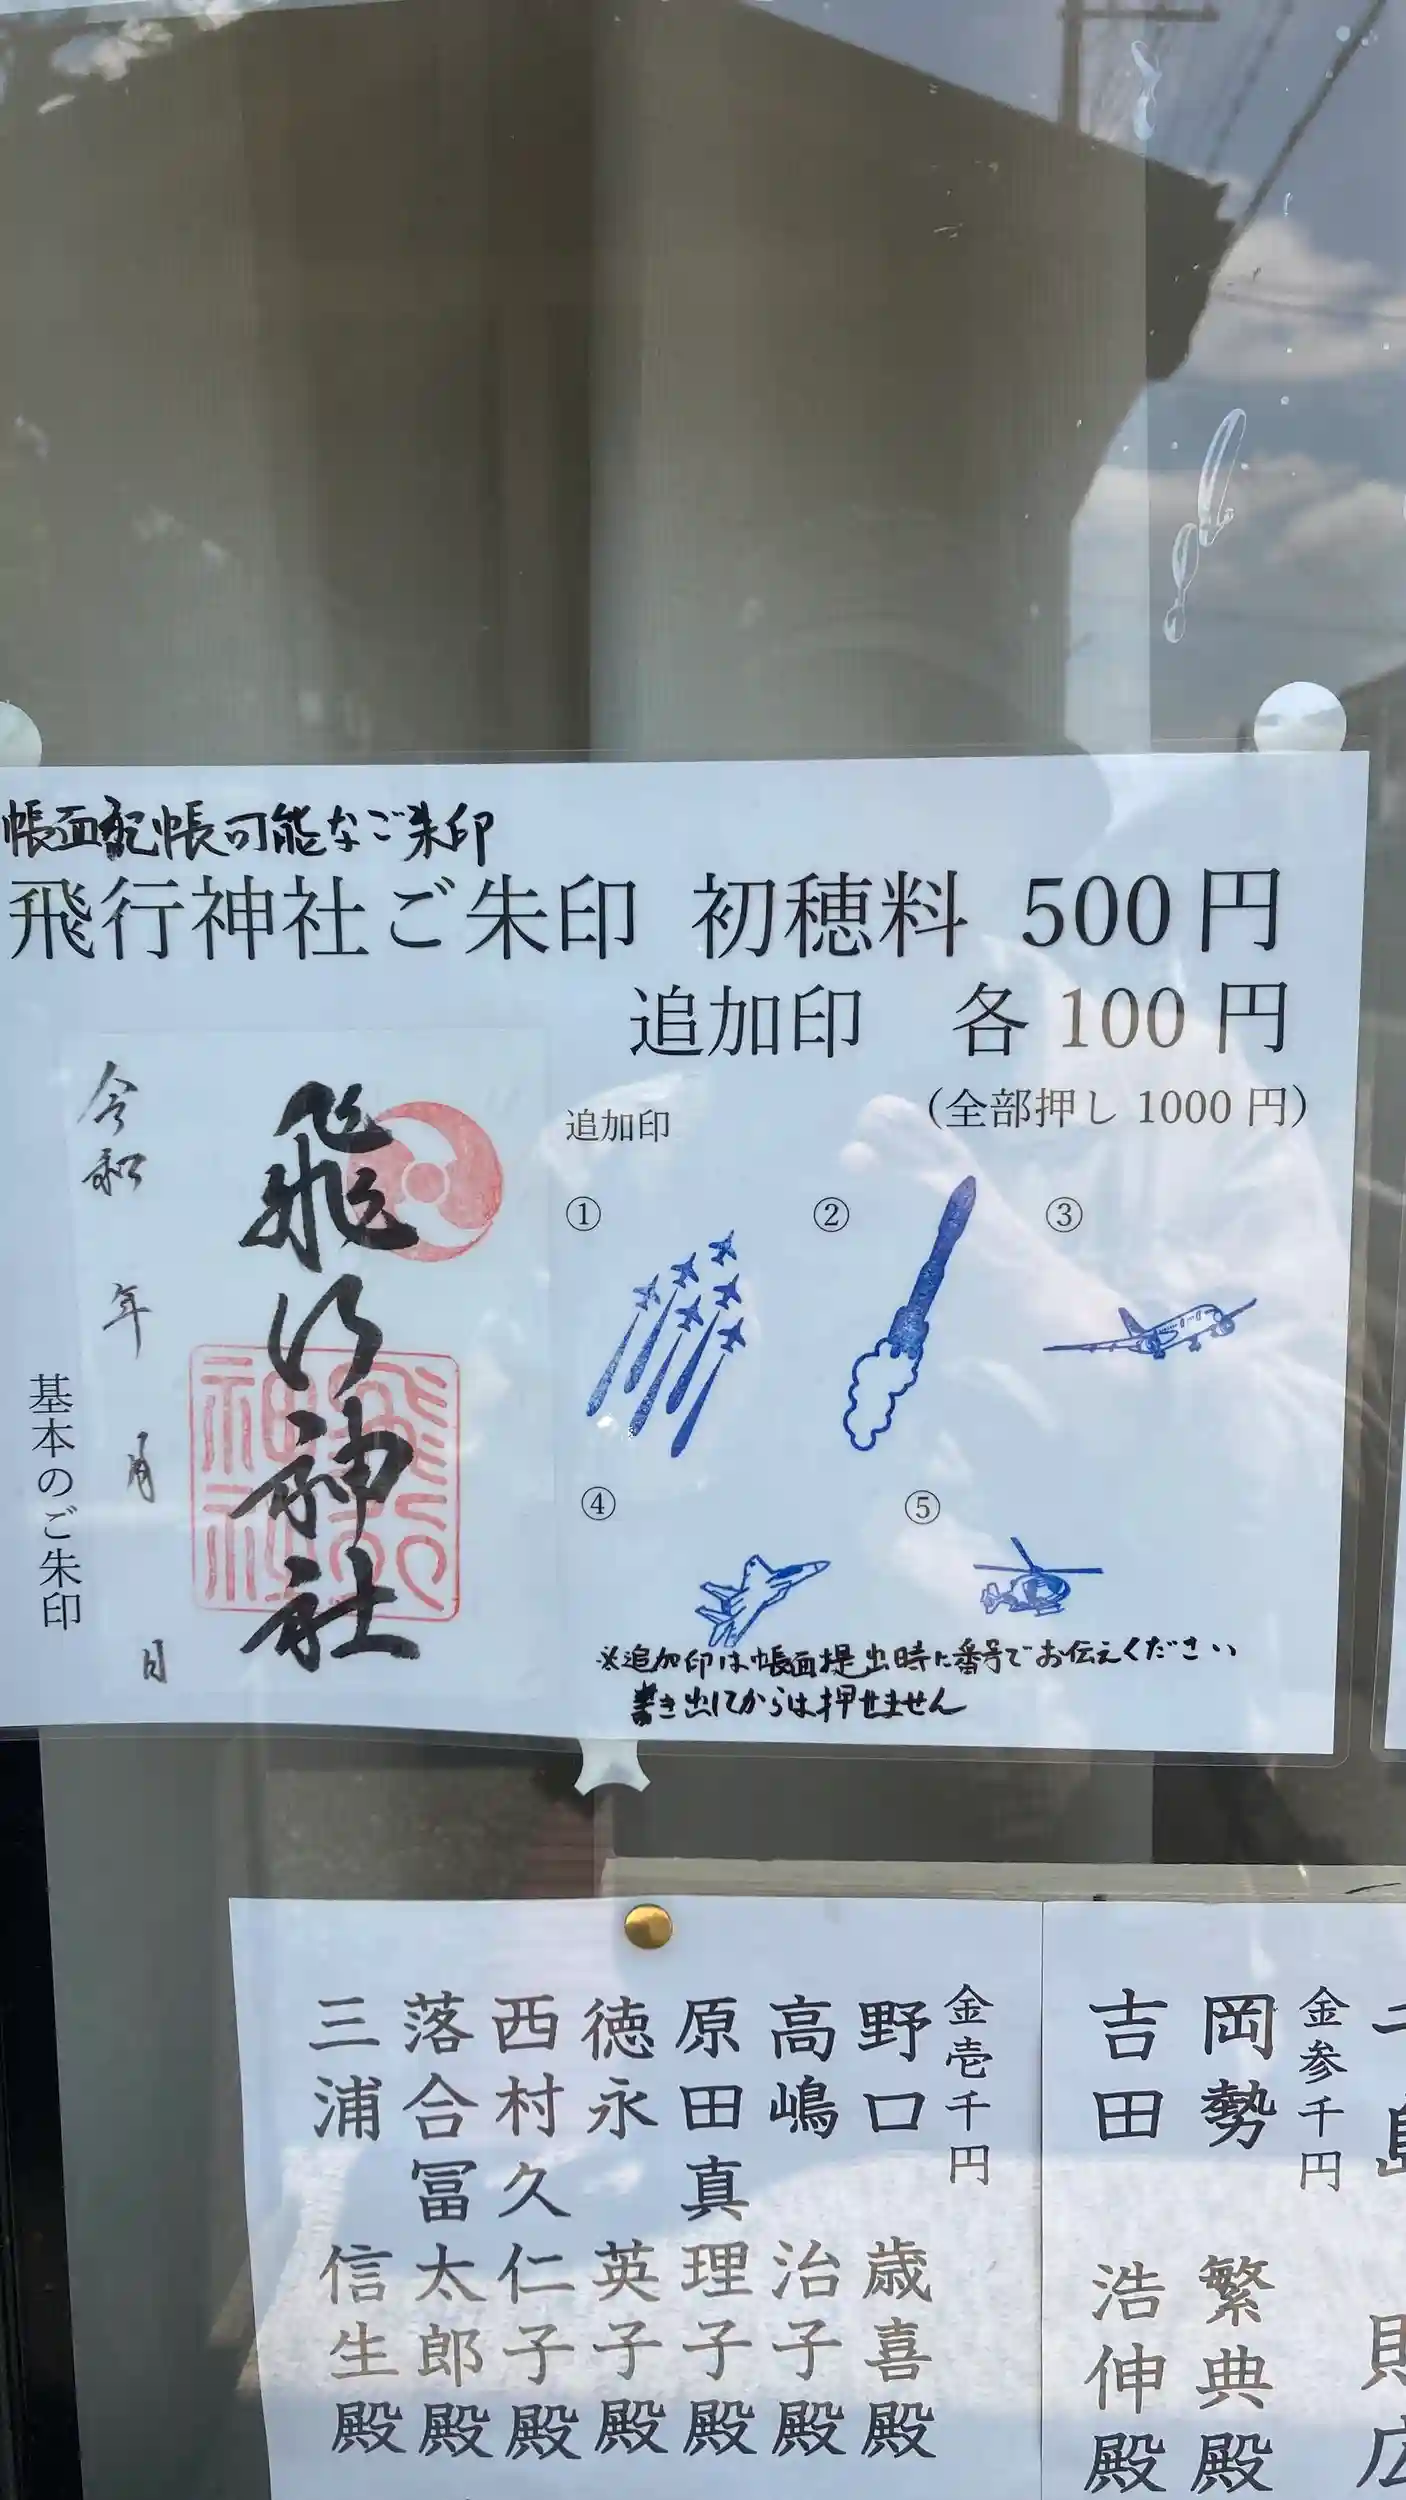 帳面記帳可能なご朱印
飛行神社ご朱印 初穂料 500円
追加印 各100円
(全部押し 1000円)
追加印
① ② ③
④ ⑤
※追加印は帳面提出時に番号でお伝えください
書き出してからは押せません
飛行神社
飛行神社
令和 年 月 日
基本のご朱印
岡勢 繁典殿
金参千円
吉田 浩伸殿
金壱千円
野口 歳喜殿
高嶋 治子殿
原田真理子殿
徳永 英子殿
西村久仁子殿
落合冨太郎殿
三浦 信生殿